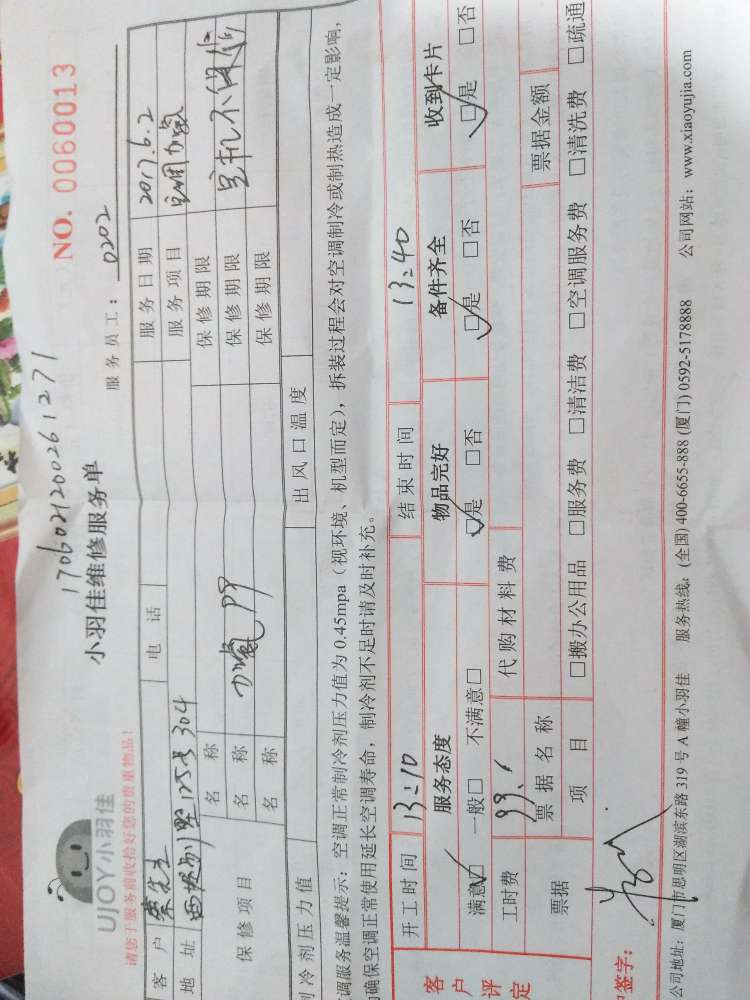 NO. 0060013
1706021200261271
UJOY小羽佳
小羽佳维修服务单
请您于服务前收拾好您的贵重物品!
服务员工: 0202
客户 电话 服务日期 2017.6.2
地址 西堤别墅125号304 服务项目 空调加氟
保修项目 名称 保修期限
名称 加氟 99 保修期限 主机不保修
名称 保修期限
制冷剂压力值 出风口温度
调服务温馨提示:空调正常制冷剂压力值为0.45mpa(视环境、机型而定),拆装过程会对空调制冷或制热造成一定影响,
确保空调正常使用延长空调寿命,制冷剂不足时请及时补充。
客户评定
开工时间 13:10 结束时间 13:40
服务态度 物品完好 备件齐全 收到卡片
满意□ 一般□ 不满意□ □是 □否 □是 □否 □是 □否
工时费 99. 代购材料费
票据 票据名称 票据金额
项目 □搬办公用品 □服务费 □清洁费 □空调服务费 □清洗费 □疏通
签字:
公司地址:厦门市思明区湖滨东路319号A幢小羽佳 服务热线:(全国)400-6655-888 (厦门)0592-5178888 公司网站:www.xiaoyujia.com